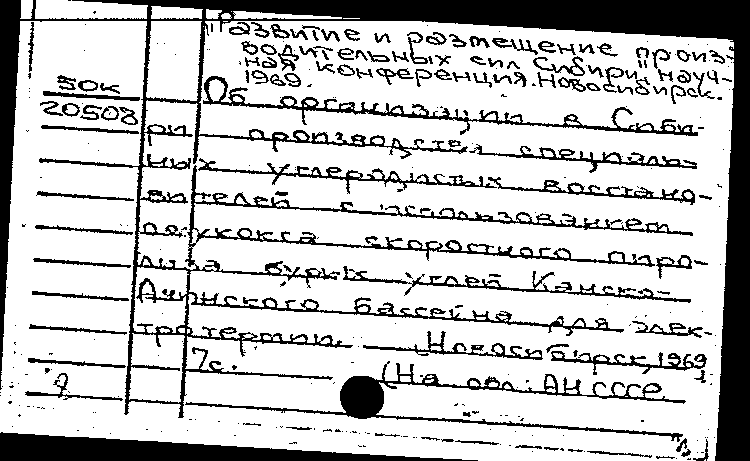 "Развитие и размещение произ-
водительных сил Сибири", науч-
ная конференция. Новосибирск.
1969.
50к
20508
Об организации в Сиби-
ри производства специаль-
ных углеродистых восстано-
вителей с использованием
полукокса скоростного пиро-
лиза бурых углей Канско-
Ачинского бассейна для элек-
тротермии. Новосибирск, 1969,
7с. (На обл.: АН СССР